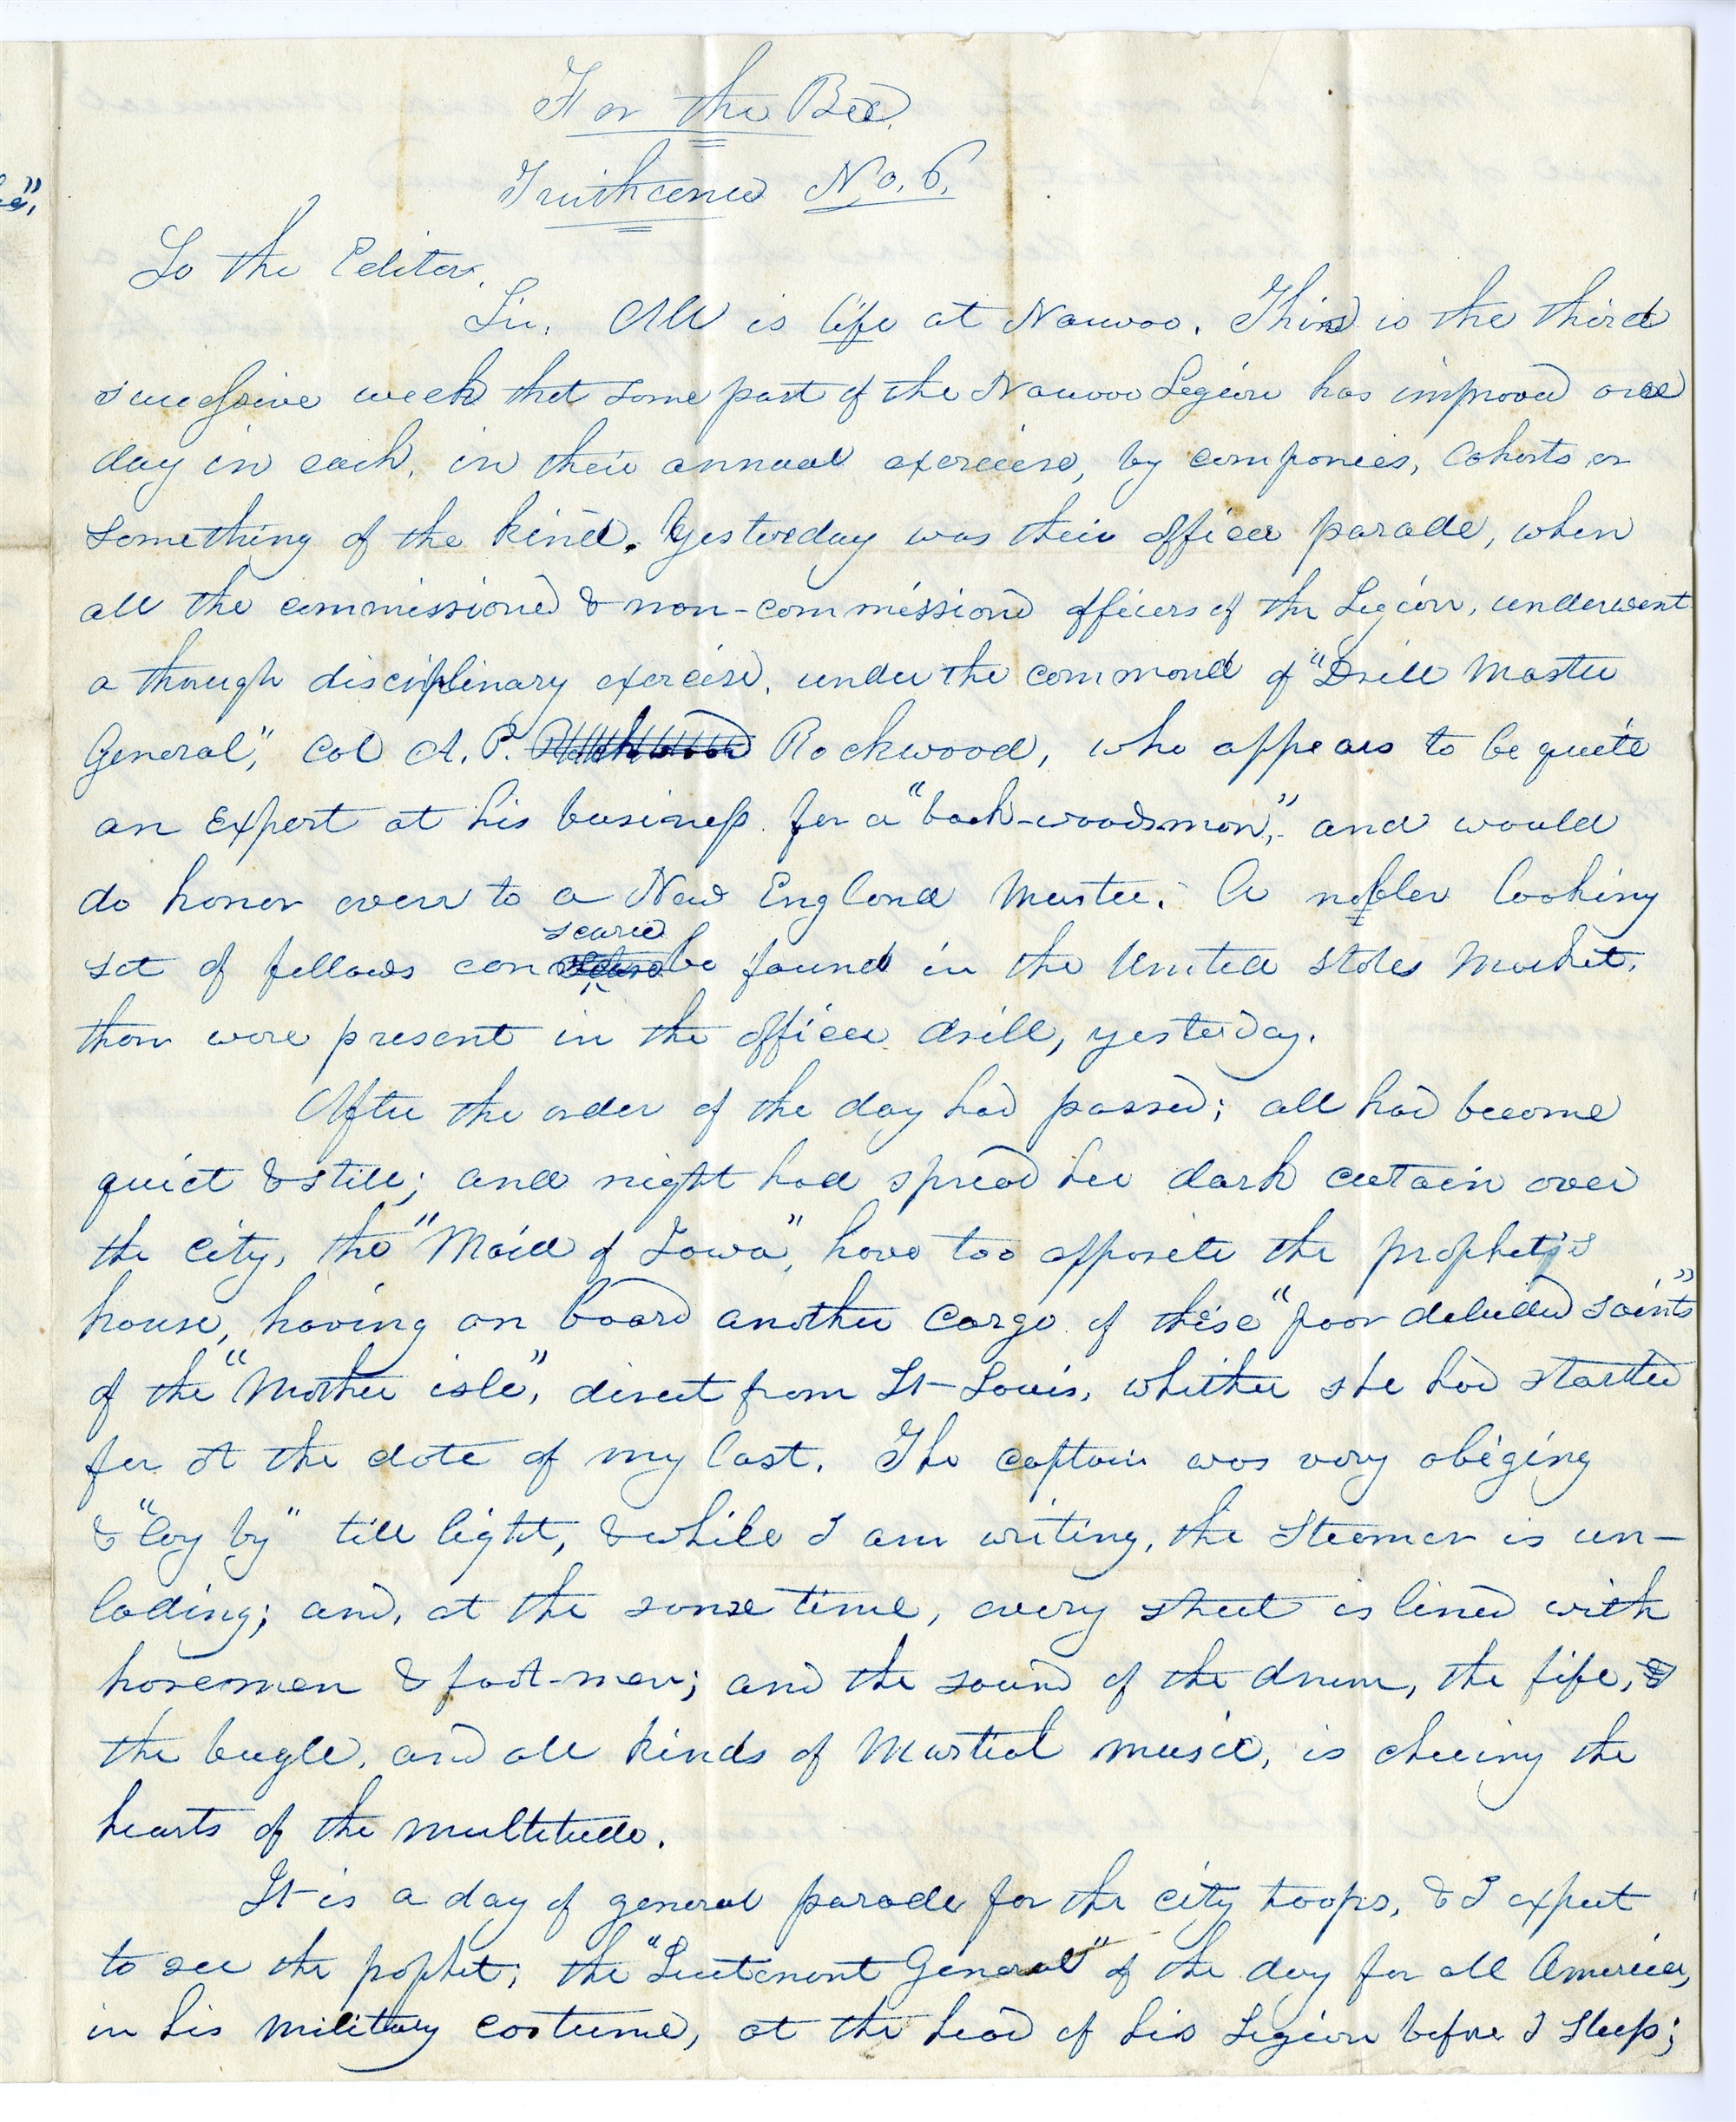 For the Bee.
Truthiana No. 6.
To the Editor.
Sir, All is life at Nauvoo. This is the third
successive week that some part of the Nauvoo Legion has improved one
day in each, in their annual exercise, by companies, Cohorts or
something of the kind. Yesterday was their officer parade, when
all the commissioned & non-commissiond officers of the Legion, underwent
a through disciplinary exercise, under the command of "Drill Master
General," Col A. P. Rockwood, who appears to be quite
an Expert at his business for a "back-woodsman," and would
do honor even to a New England Muster. A nobler looking
scarce
set of fellows can be found in the United States Market,
than were present in the officer drill, yesterday.
After the order of the day had passed; all had become
quiet & still; and night had spread her dark curtain over
the city, the "Maid of Iowa", hove too opposite the prophet's
house, having on board another Cargo of these "poor deluded saints"
of the "Mother isle", direct from St-Louis, whither she had started
for at the date of my last. The captain was very obliging
& "lay by" till light, & while I am writing, the Steamer is un-
lading; and, at the same time, every street is lined with
horsemen & foot-men; and the sound of the drum, the fife, &
the bugle, and all kinds of Martial music, is cheering the
hearts of the multitude.
It is a day of general parade for the city troops, & I expect
to see the prophet; the "Lieutenant General" of the day for all America,
in his military costume, at the head of his Legion before I sleep;